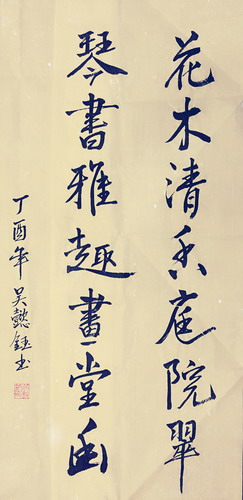 花木清香庭院翠
琴書雅趣畫堂幽
丁酉年吴懿鈺书